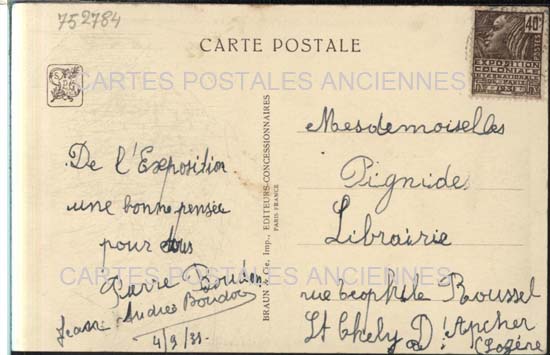 752784
CARTE POSTALE
CARTES POSTALES ANCIENNES
40c
EXPOSITION
COLONIALE
INTERNATIONALE
De l'Exposition
une bonne pensée
pour tous
Pierre
Andrée Boudon
Jeanne
4/9/31.
BRAUN & Cie, Imp., EDITEURS-CONCESSIONNAIRES
PARIS FRANCE
Mesdemoiselles
Pignide
Librairie
rue théophile Roussel
St Chely D'Apcher
(Lozère
CARTES POSTALES ANCIENNES